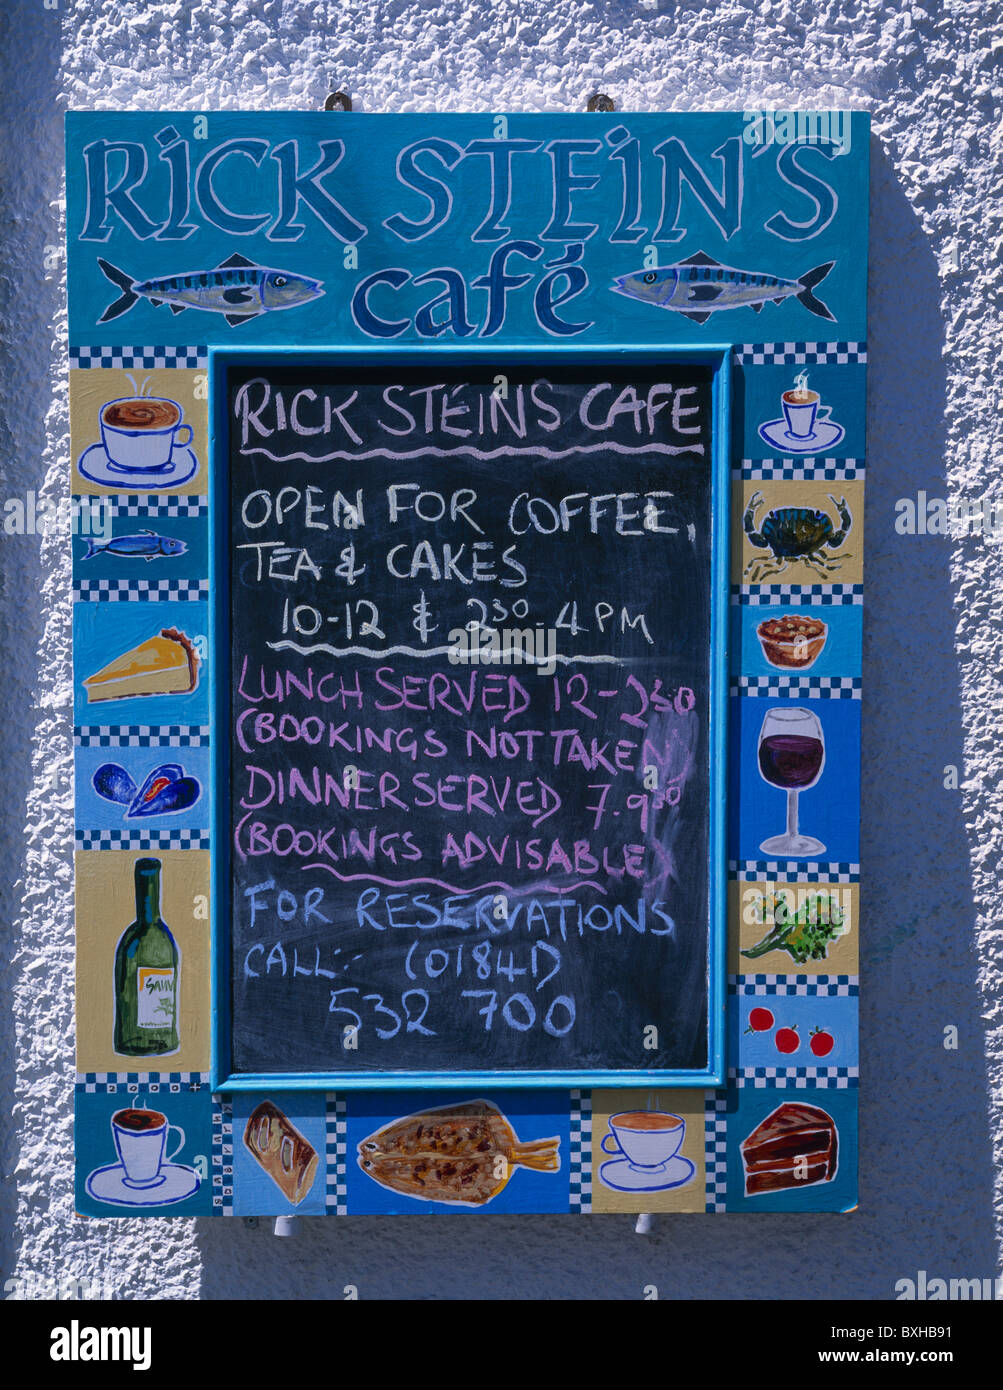 RICK STEIN'S
café
RICK STEINS CAFE
OPEN FOR COFFEE,
TEA & CAKES
10-12 & 2 30 - 4 PM
LUNCH SERVED 12 - 2 30
(BOOKINGS NOT TAKEN
DINNER SERVED 7. 9 30
(BOOKINGS ADVISABLE)
FOR RESERVATIONS
CALL:- (01841)
532 700
SAUV
2000
alamy
Image ID: BXHB91
www.alamy.com